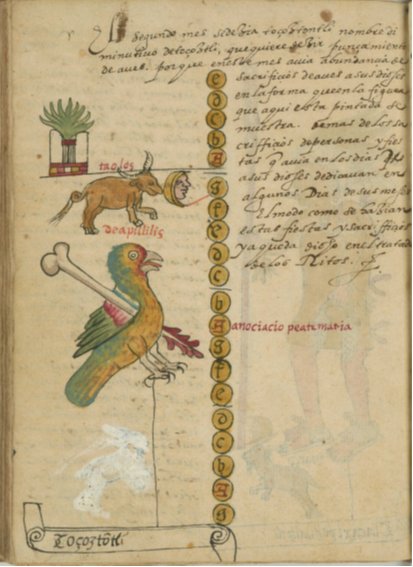 El segundo mes se dezia toçoztontli nombre di
minutivo de toçoztli, que quiere dezir punçamiento
de aves. porque en este mes avia abundançia de
sacrifiçios de aves a sus dioses
en la forma que en la figura
que aqui esta pintada se
muestra. demas de los sa
crifiçios de personas y fies
tas q̃ avia en los dias
a sus dioses dedicavan en
algunos Dias de sus meses
El modo como se hazian
estas fiestas y sacrifiçios
ya queda dicho en el tratado
de los Ritos.
e
d
c
b
A
g
f
e
d
c
b
A
g
f
e
d
c
b
A
g
tauros
de aprilis
anociacio
Toçoztõtli